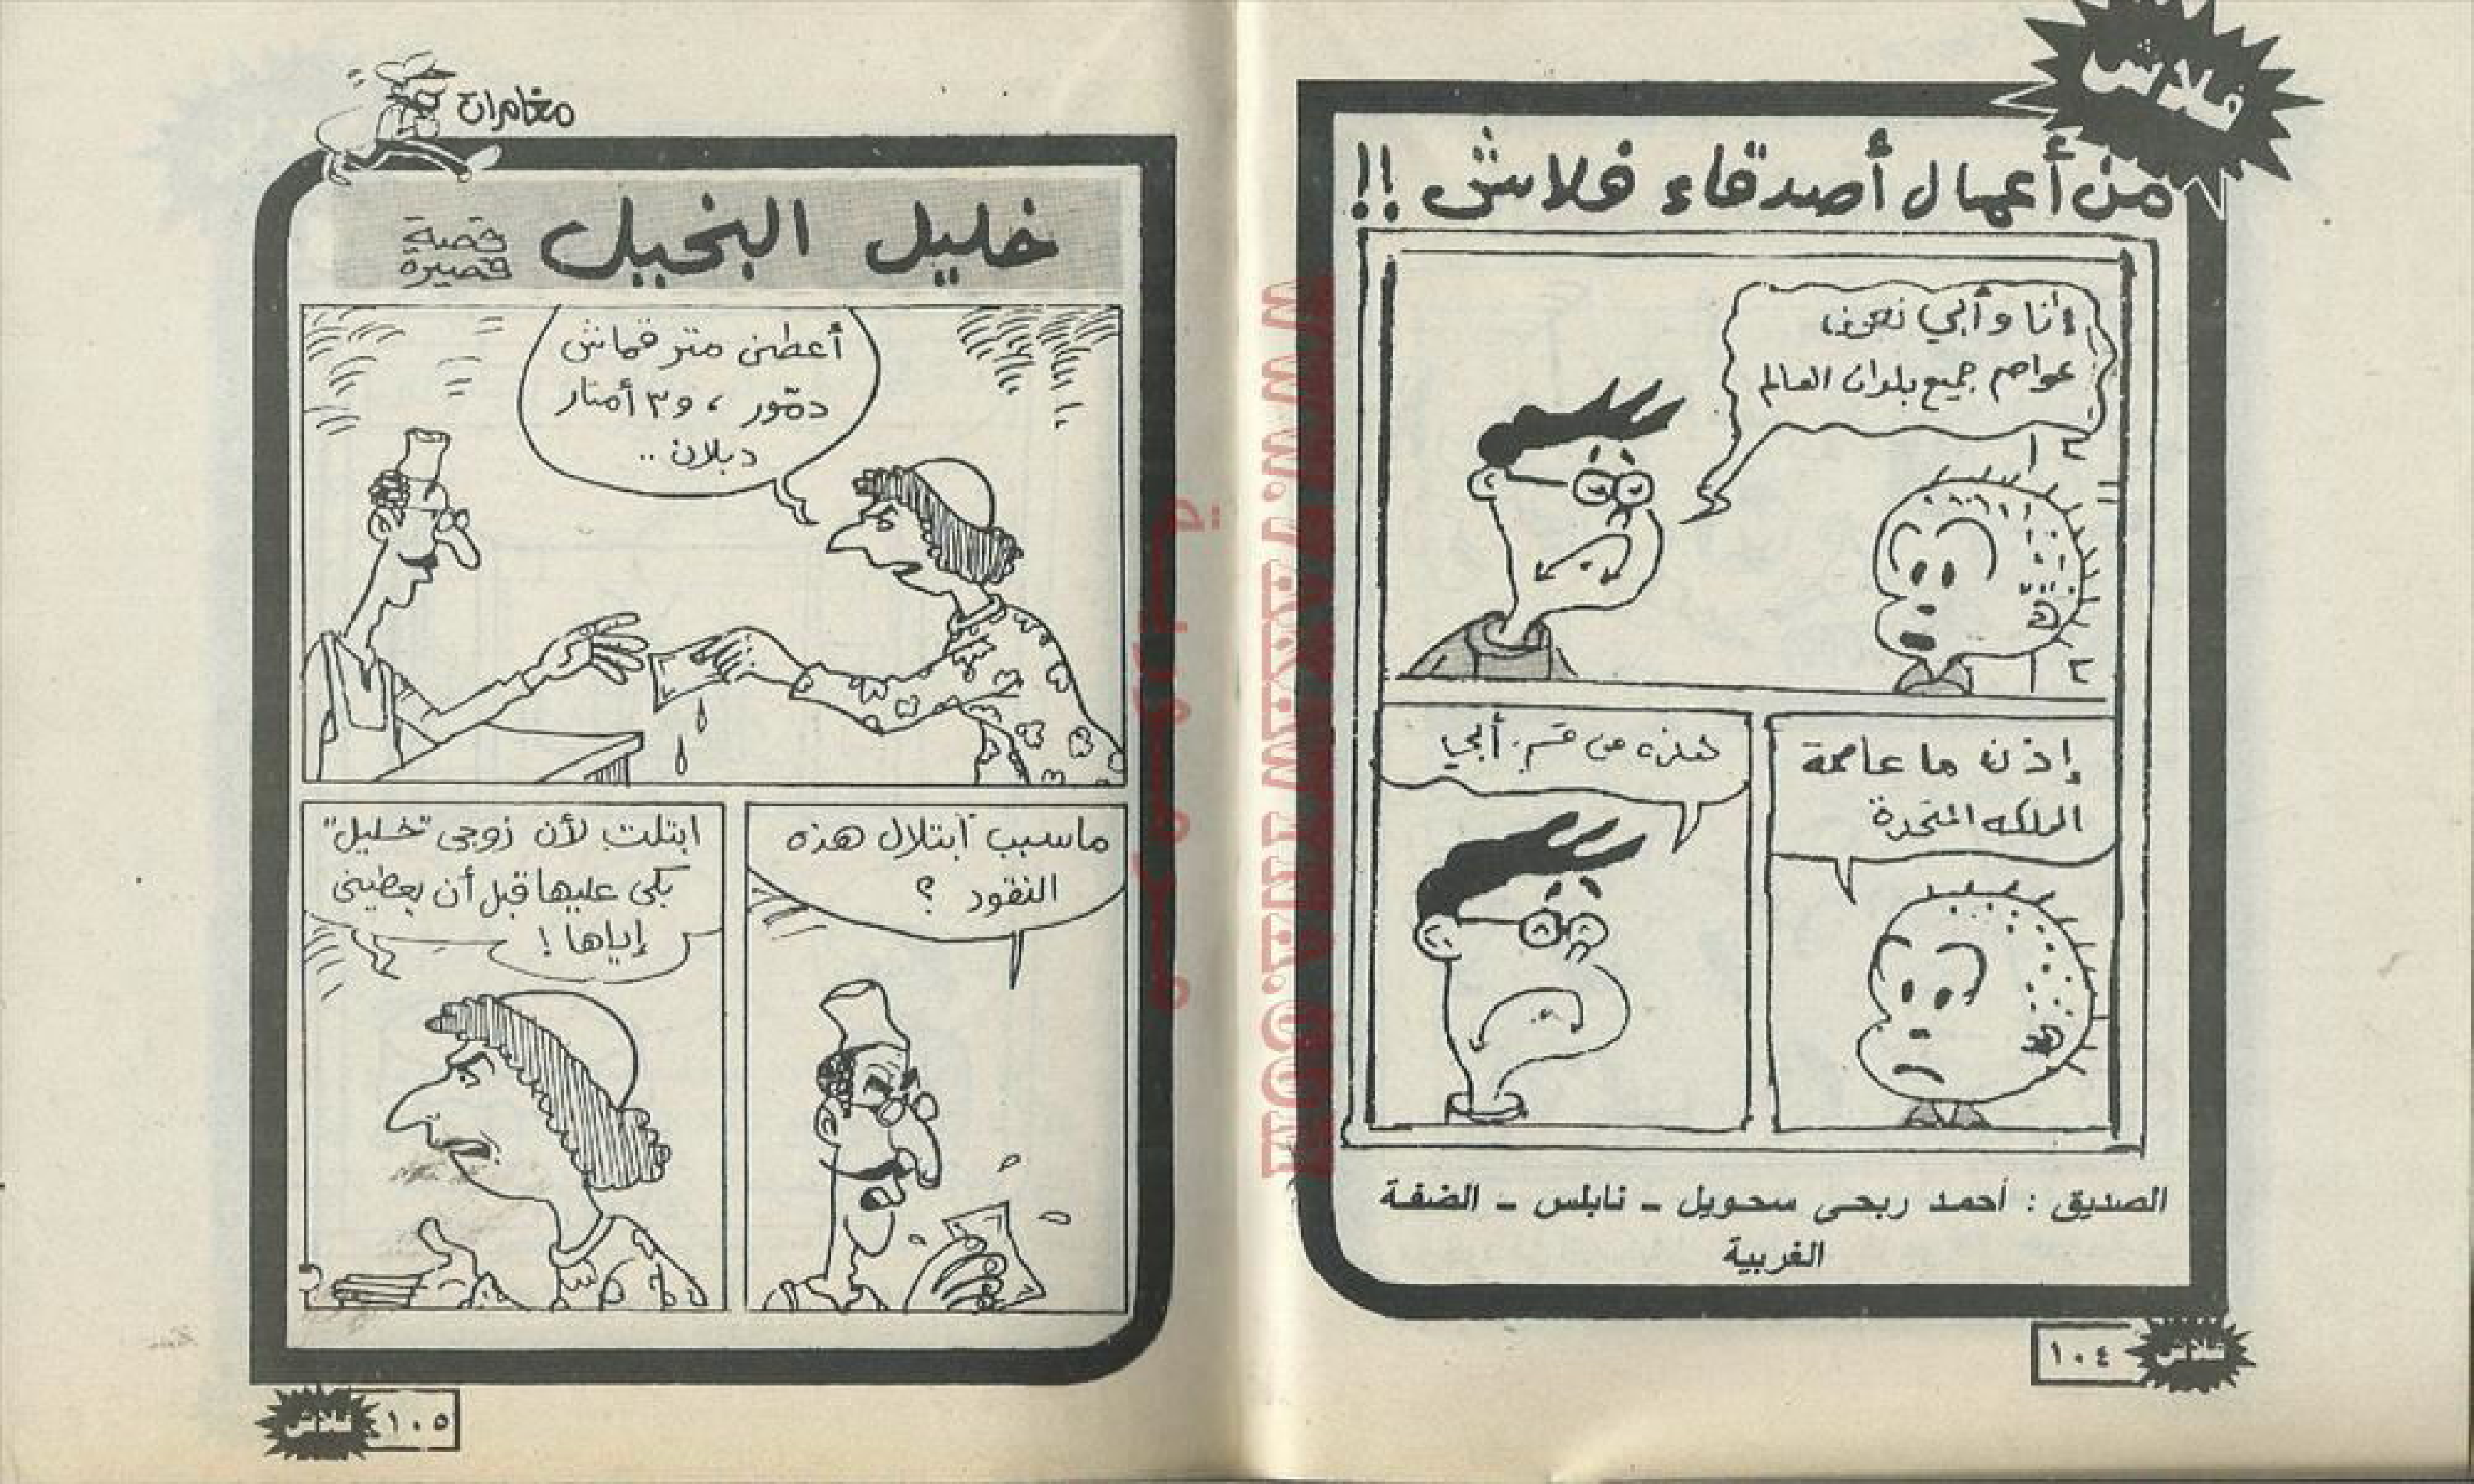 فلاش
من أعمال أصدقاء فلاش !!
أنا وأبي نعرف
عواصم جميع بلدان العالم
إذن ما عاصمة
المملكه المتحدة
هذه من قسم أبي
الصديق : أحمد ربحى سحويل - نابلس - الضفة
الغربية
١٠٤
فلاش
مغامرات
خليل البخيل
قصة
قصيرة
أعطنى متر قماش
دمّور ، و٣ أمتار
دبلان ..
ما سبب ابتلال هذه
النقود ؟
ابتلت لأن زوجى "خليل"
بكى عليها قبل أن يعطينى
إياها !
١٠٥
فلاش